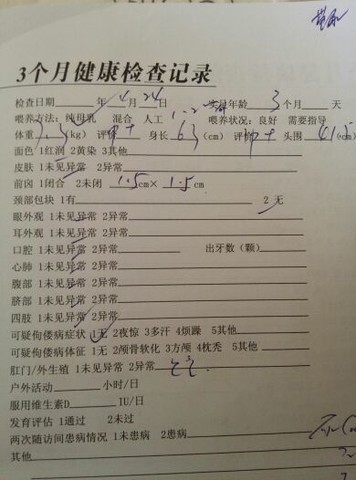 3个月健康检查记录
检查日期 年 4 月 24 日 实足年龄 3 个月 天
喂养方法: 纯母乳 混合 人工 喂养状况: 良好 需要指导
体重 (kg) 评价 中+ 身长 63 (cm) 评价 中+ 头围 41.5 (cm)
面色 1红润 2黄染 3其他
皮肤 1未见异常 2异常
前囟 1闭合 2未闭 1.5cm× 1.5cm
颈部包块 1有 2 无
眼外观 1未见异常 2异常
耳外观 1未见异常 2异常
口腔 1未见异常 2异常 出牙数(颗)
心肺 1未见异常 2异常
腹部 1未见异常 2异常
脐部 1未见异常 2异常
四肢 1未见异常 2异常
可疑佝偻病症状 1无 2夜惊 3多汗 4烦躁 5其他
可疑佝偻病体征 1无 2颅骨软化 3方颅 4枕秃 5其他
肛门/外生殖 1未见异常 2异常
户外活动 小时/日
服用维生素D IU/日
发育评估 1通过 2未过
两次随访间患病情况 1未患病 2患病
其他